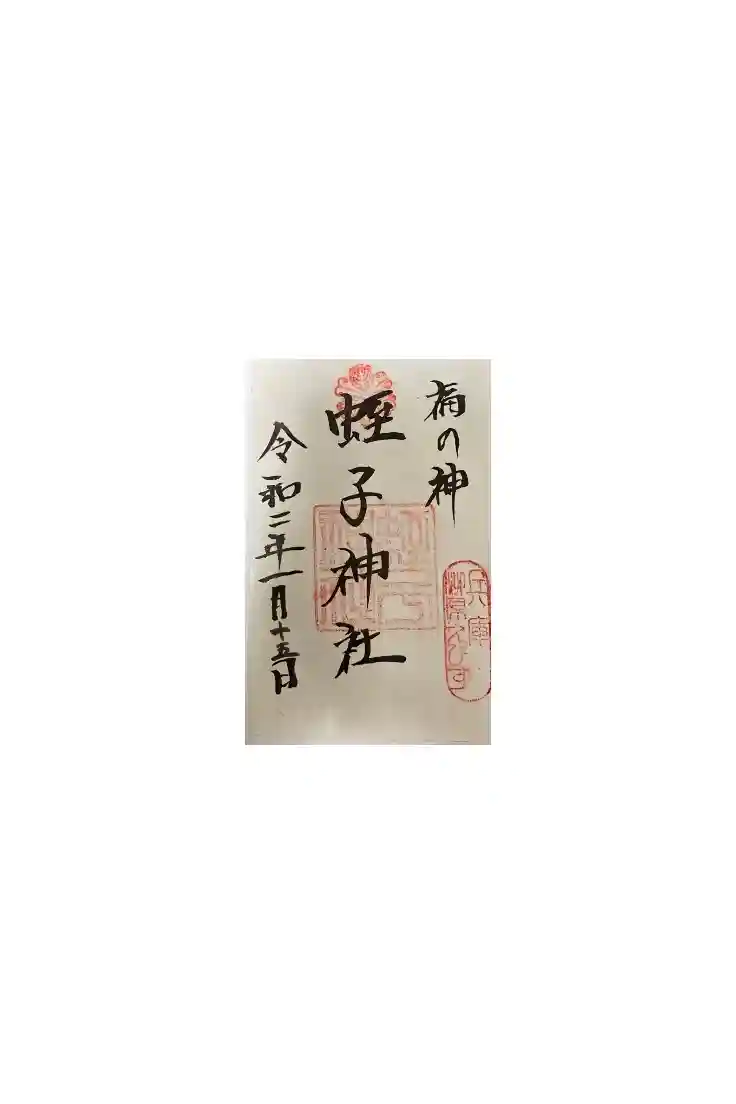 福の神
兵庫
柳原ゑびす
蛭子神社
令和二年一月十五日